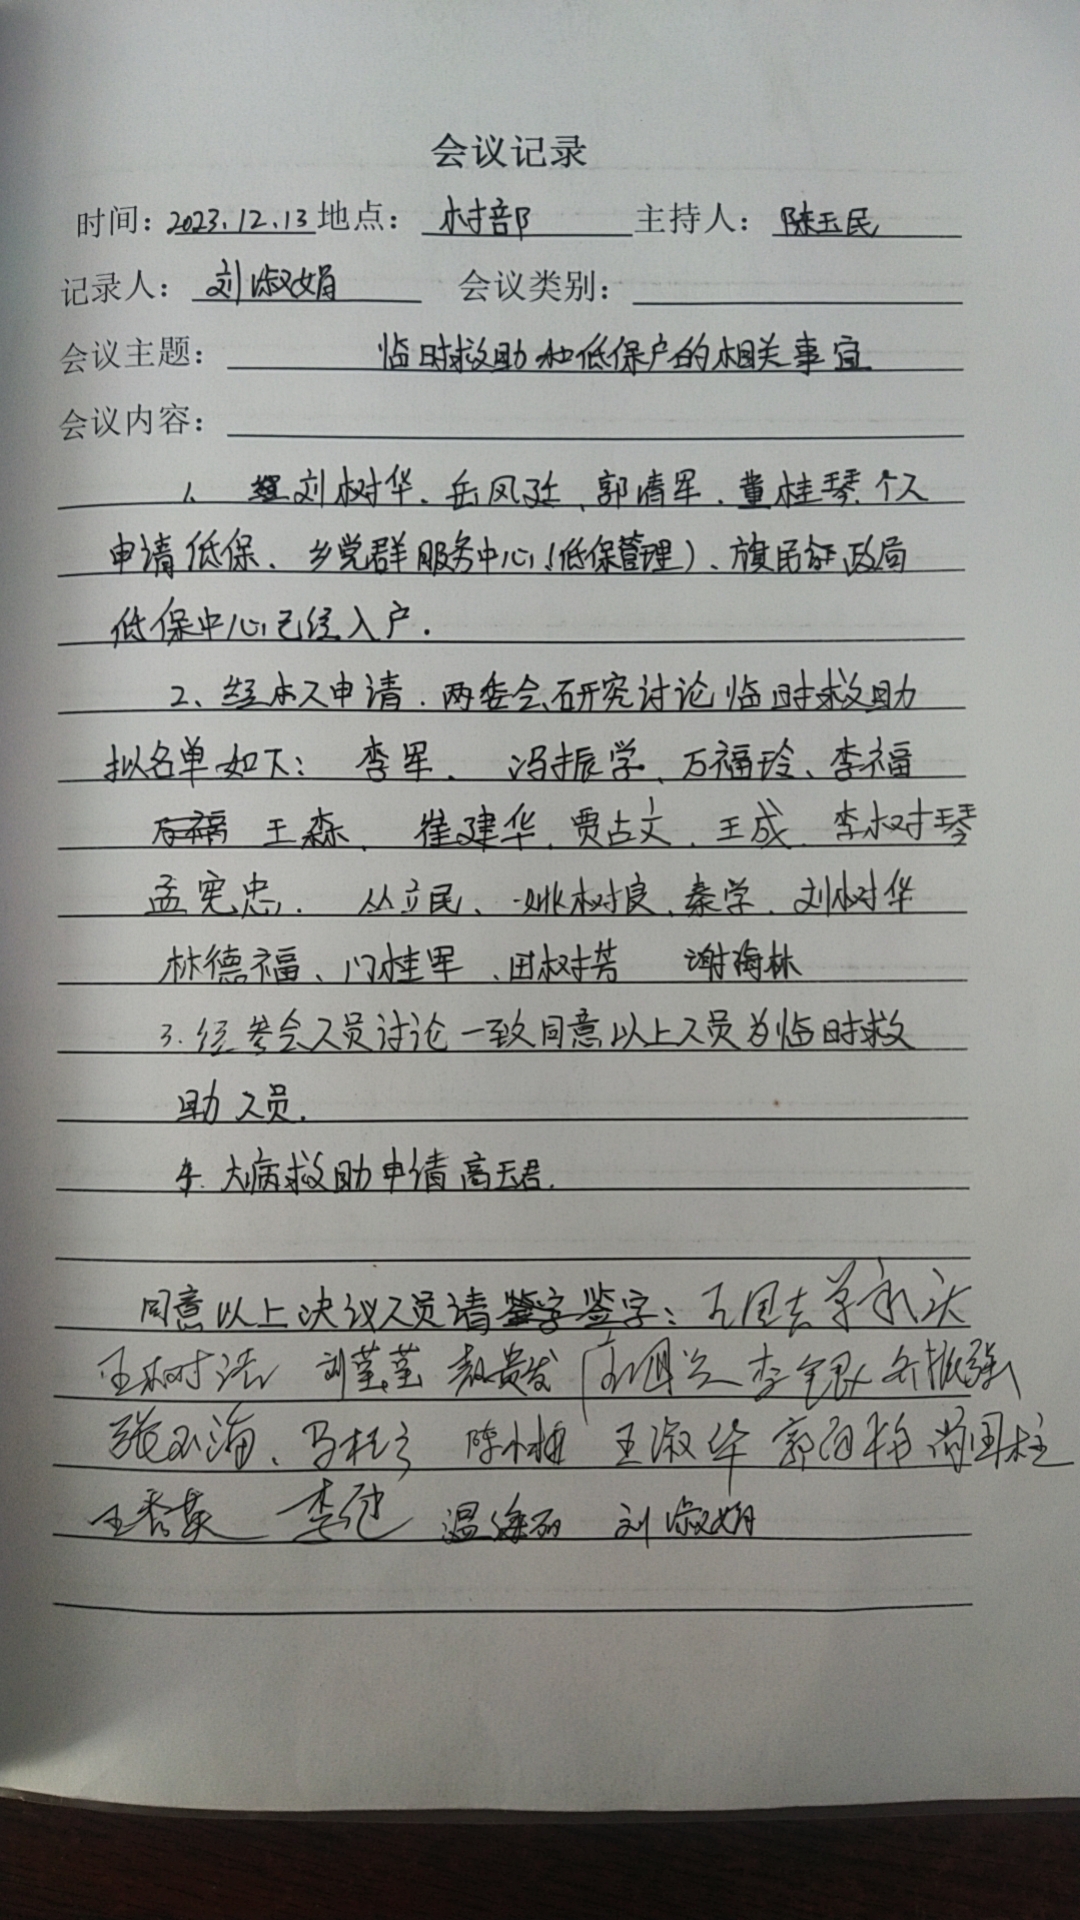 会议记录
时间：2023.12.13 地点：村部 主持人：陈玉民
记录人：刘淑娟 会议类别：
会议主题：临时救助和低保户的相关事宜
会议内容：
1、经刘树华、岳凤廷、郭清军、董桂琴个人
申请低保、乡党群服务中心(低保管理)、旗民政局
低保中心已经入户.
2、经本人申请.两委会研究讨论临时救助
拟名单如下：李军、冯振学、万福玲、李福
王森、崔建华、贾占文、王成、李树琴
孟宪忠、丛立民、姚树良、秦学、刘树华
林德福、门桂军、田树芳 谢海林
3.经参会人员讨论一致同意以上人员为临时救
助人员.
4.大病救助申请高玉君.
同意以上决议人员请签字：
王树 刘莹莹 贵发 李 振强
张玉海、马桂 陈小 王淑华 郭 国柱
王秀英 李 温 刘淑娟